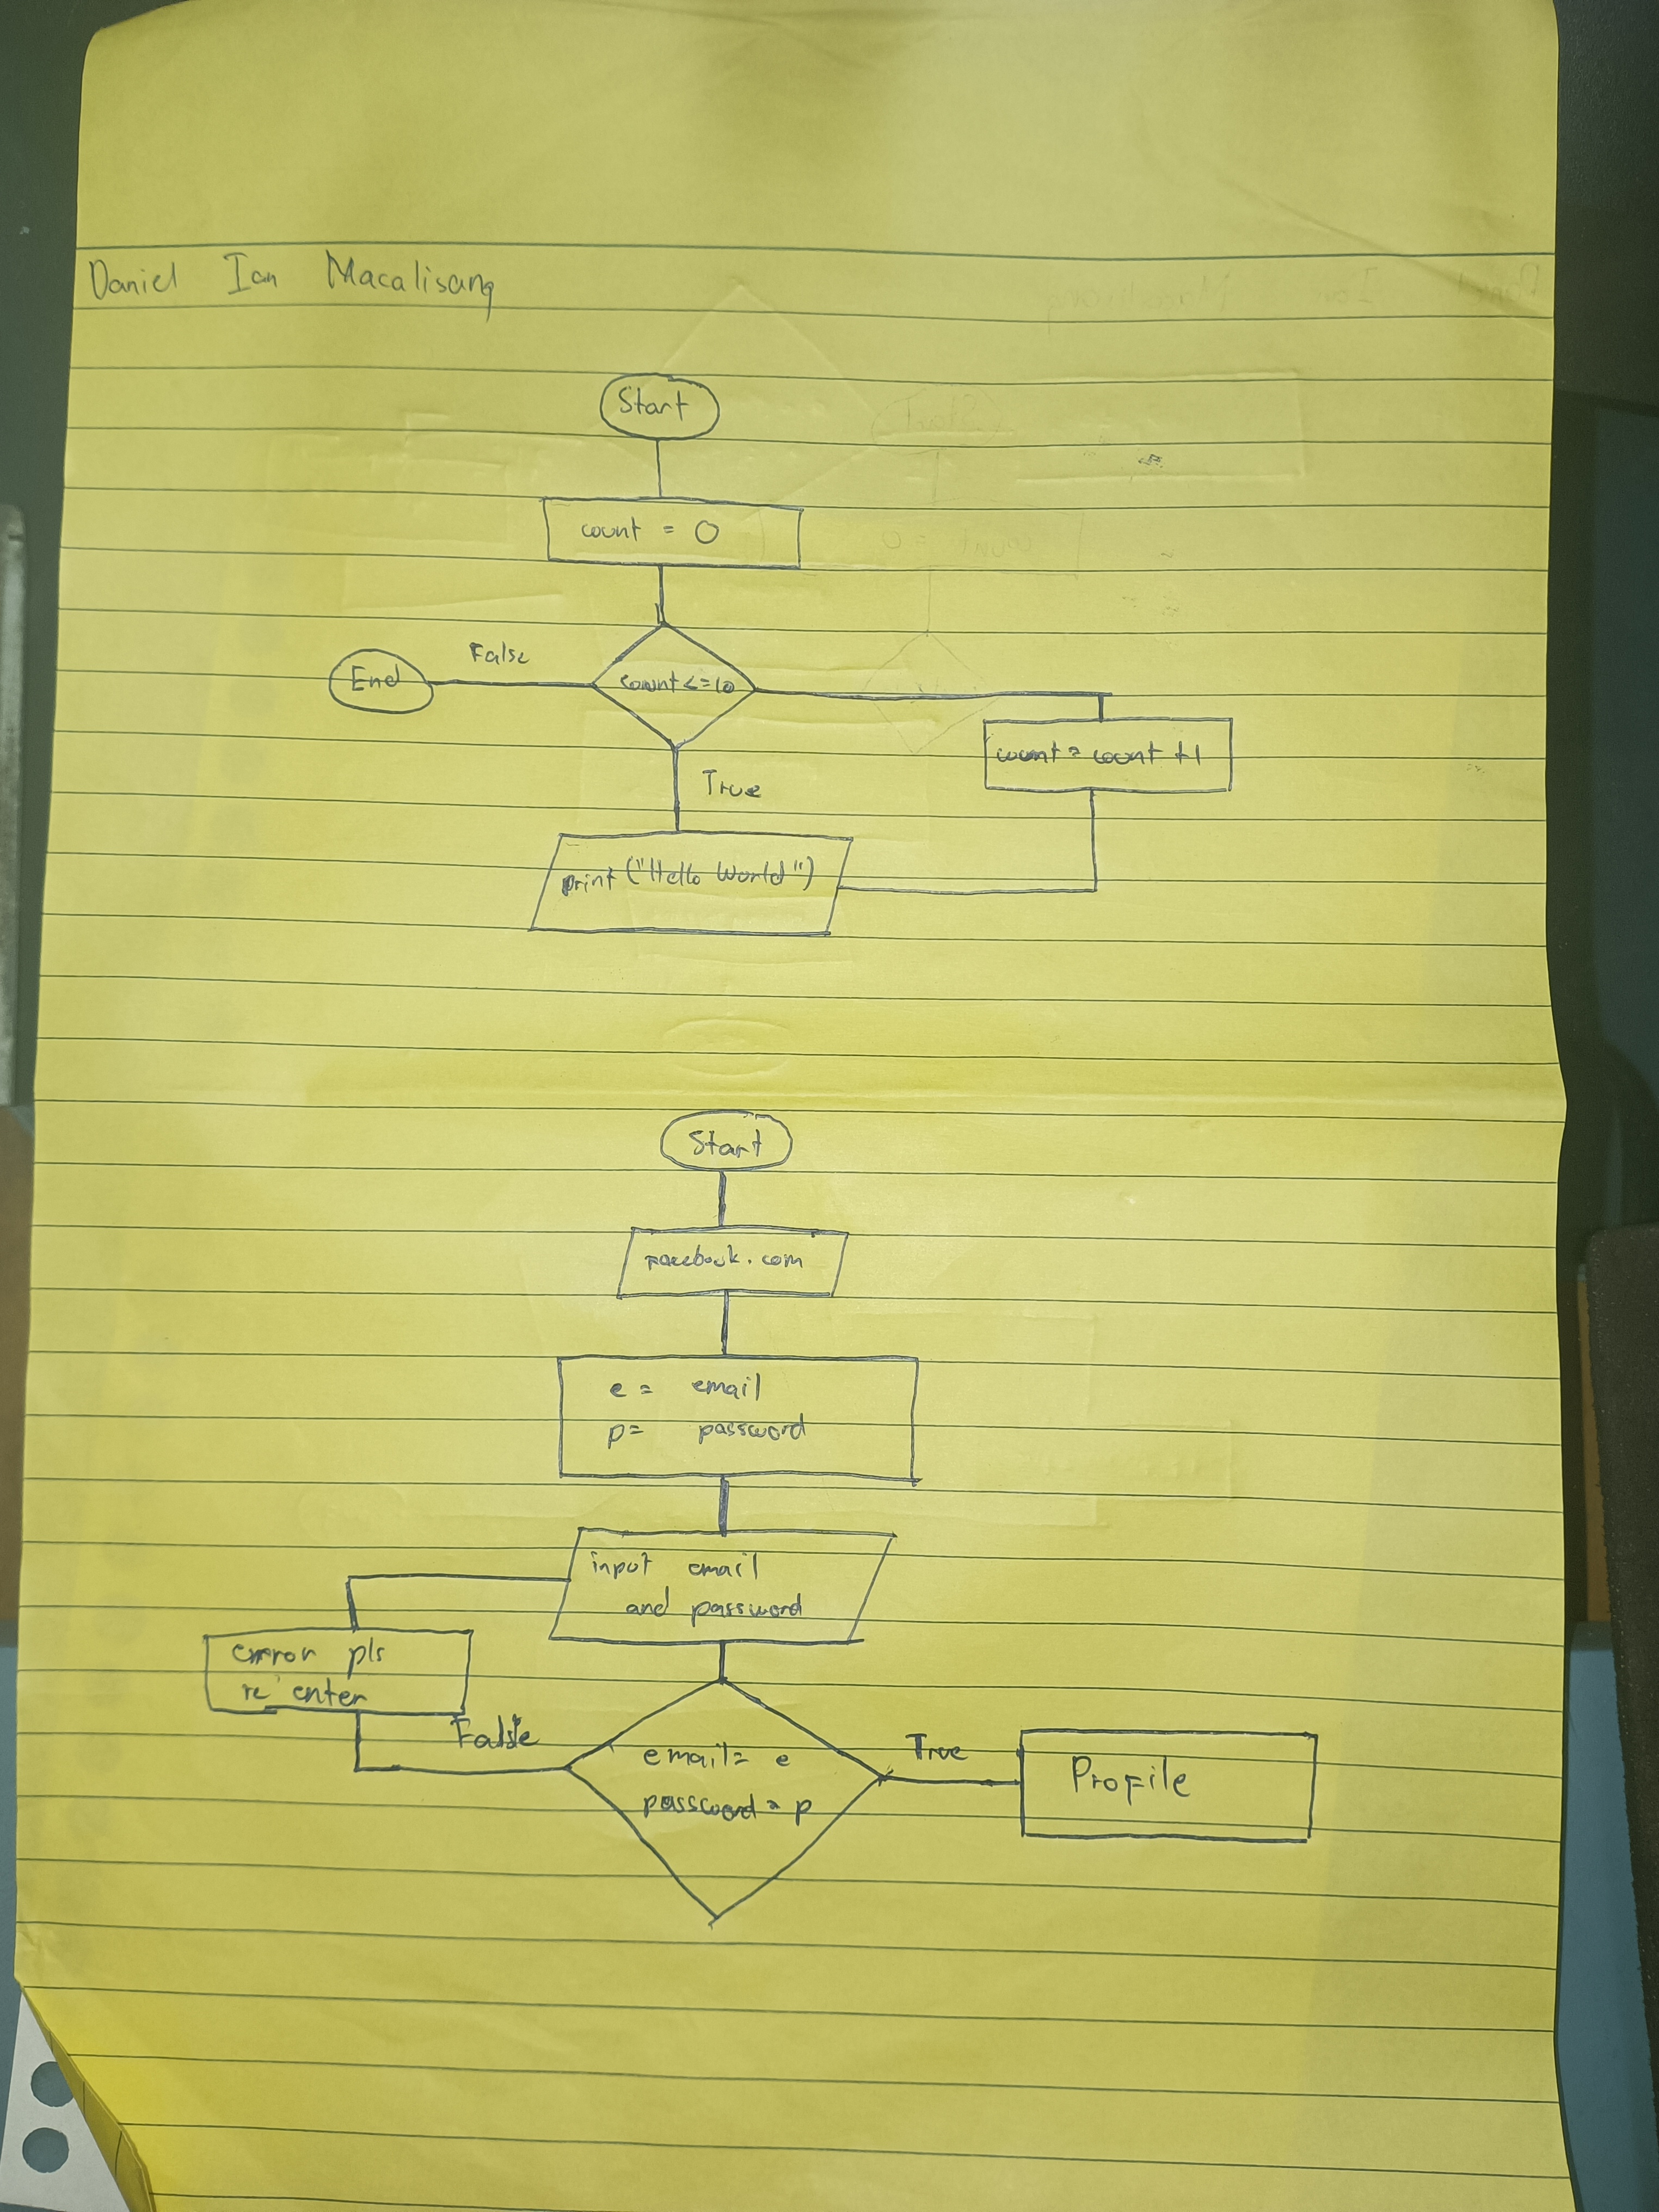 Daniel Ian Macalisang
Start
count = 0
count <= 10
False
End
True
print ("Hello World")
count = count +1
Start
Facebook.com
e = email
p = password
input email
and password
error pls
re enter
False
email = e
password = p
True
Profile